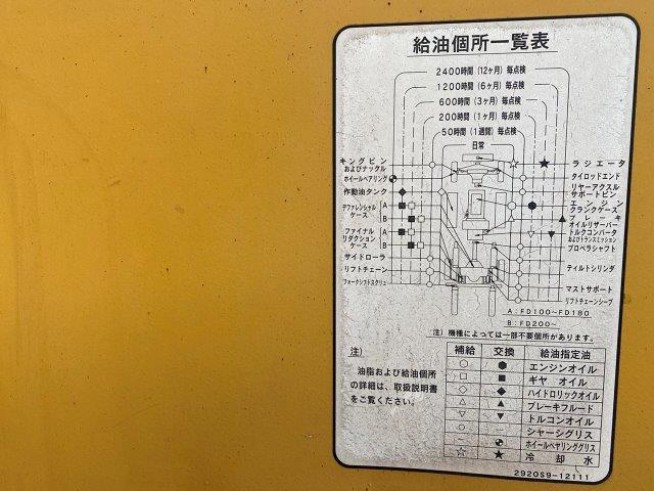 給油個所一覧表
2400時間(12ヶ月)毎点検
1200時間(6ヶ月)毎点検
600時間(3ヶ月)毎点検
200時間(1ヶ月)毎点検
50時間(1週間)毎点検
日常
キングピン
およびナックル
ホイールベアリング
作動油タンク
デファレンシャル
ケース
A
B
ファイナル
リダクション
ケース
A
B
サイドローラ
リフトチェーン
フォークシフトスクリュ
ラジエータ
タイロッドエンド
リヤーアクスル
サポートピン
エンジン
クランクケース
ブレーキ
オイルリザーバー
トルクコンバータ
およびトランスミッション
プロペラシャフト
ティルトシリンダ
マストサポート
リフトチェーンシーブ
A:FD100~FD180
B:FD200~
注)機種によっては一部不要個所があります。
注)
油脂および給油個所
の詳細は、取扱説明書
をご覧ください。
補給 交換 給油指定油
○ ● エンジンオイル
□ ■ ギヤオイル
◇ ◆ ハイドロリックオイル
△ ▲ ブレーキフルード
▽ ▼ トルコンオイル
シャーシグリス
ホイールベヤリンググリス
☆ ★ 冷却水
292059-12111